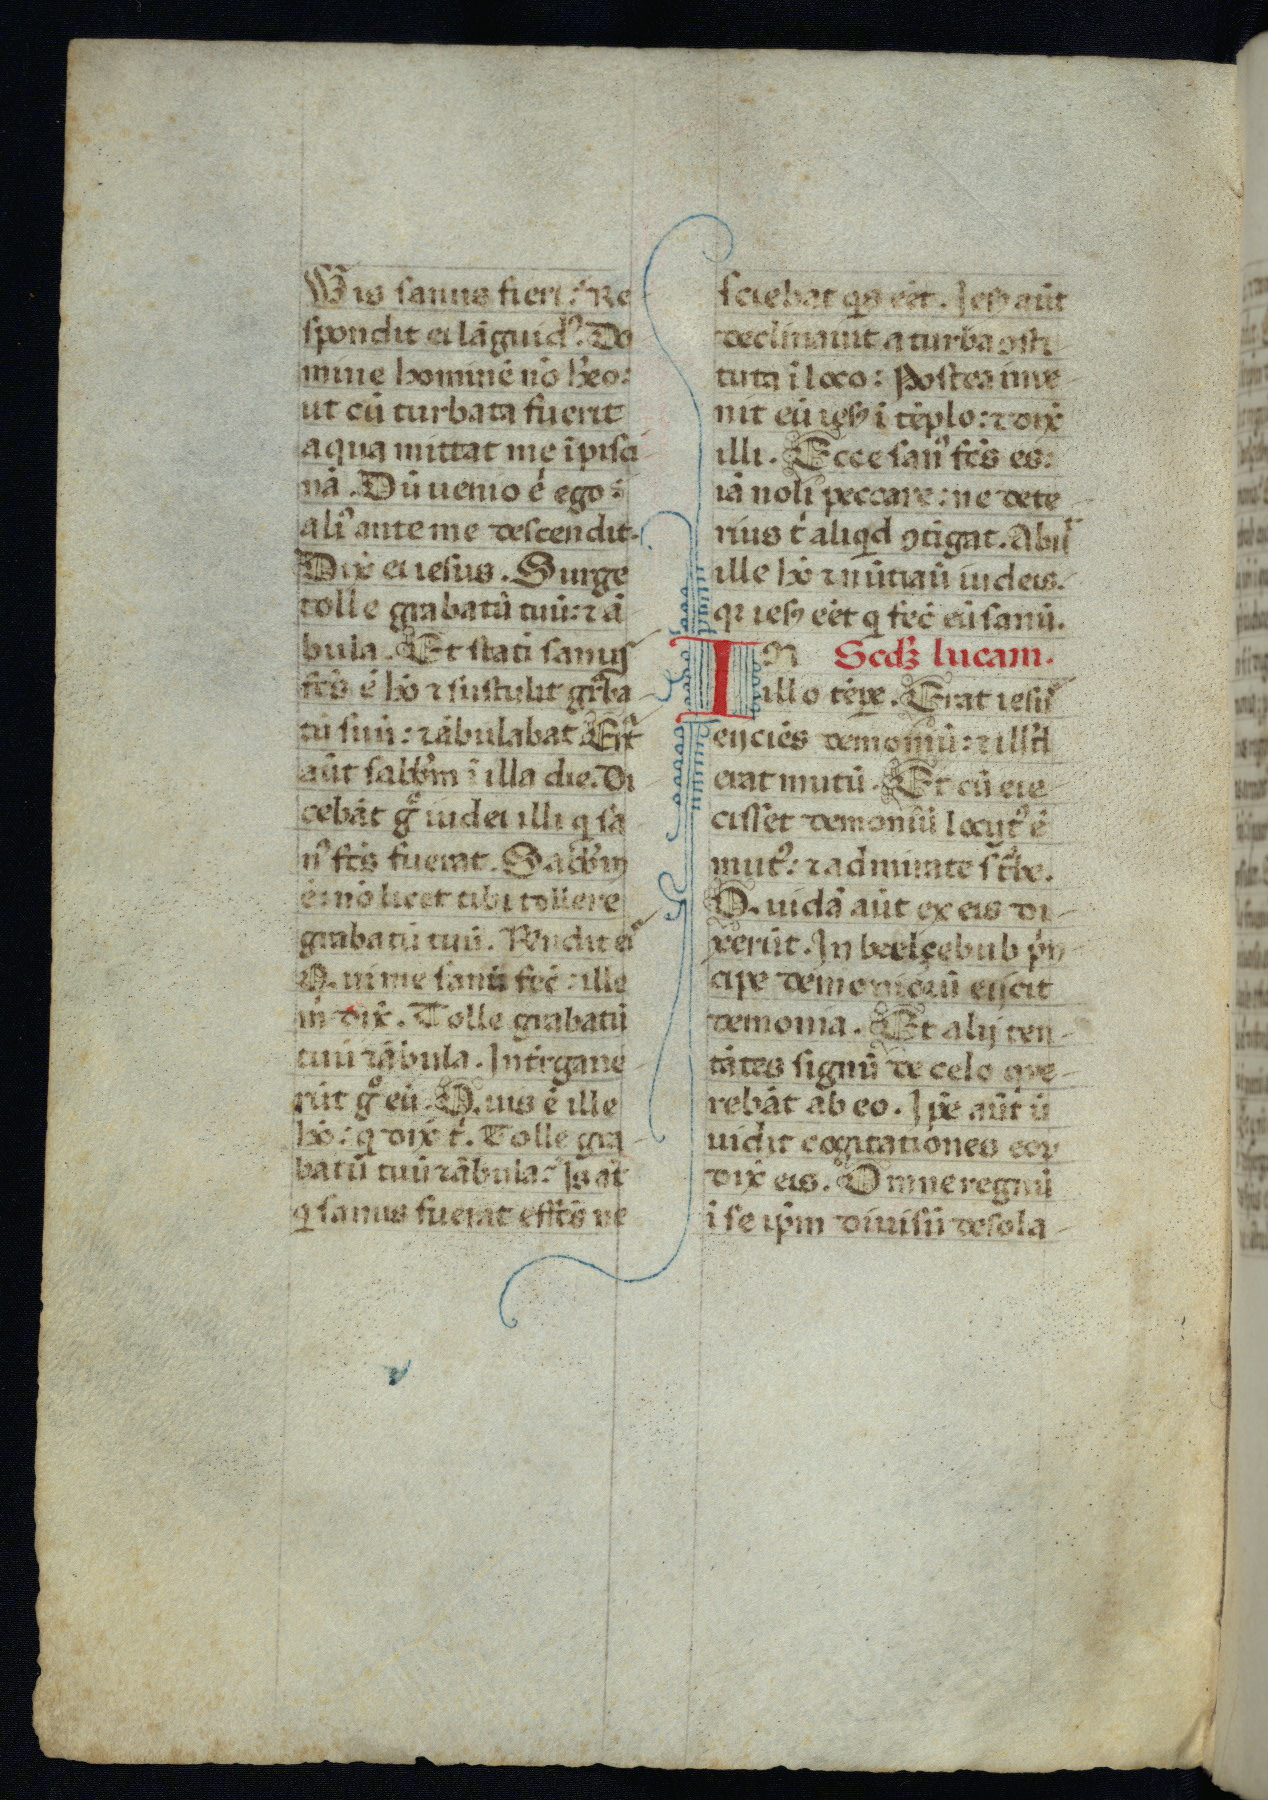 Vis sanus fieri? Re
spondit ei lāguid᾽. Do
mine hominē nō h̄eo:
ut cū turbata fuerit
aqua mittat me ī pisci
nā. Dū uenio ē ego:
ali᾽ ante me descendit.
Dix̄ ei iesus. Surge
tolle grabatū tuū: ⁊ ā
bula. Et stati sanus
fc̄s ē hō ⁊ sustulit gͣba
tū suū: ⁊ ābulabat. Erͣt
aūt sabb̄m ī illa die. Di
cebāt gͦ iudei illi q sa
n᾽ fc̄s fuerat. Sabb̄m
ē: nō licet tibi tollere
grabatū tuū. Rn̄dit eiˢ
Qui me sanū fec̄: ille
m̄ dix̄. Tolle grabatū
tuū ⁊ ābula. Int̄rgaue
rūt gͦ eū. Quis ē ille
hō: q dix̄ t̄. Tolle gra
batū tuū ⁊ ābula? Is āt
q sanus fuerat effc̄s ne
sciebat qs eēt. Jesꝰ aūt
declinauit a turba ꝯsti
tuta ī loco: Postea inue
nit eū iesꝰ ī tēplo: ⁊ dix̄
illi. Ecce san᾽ fc̄s es:
iā noli peccare: ne dete
rius t̄ aliqd ꝯtigat. Abiit
ille hō ⁊ nūtiaū iudeis.
q iesꝰ eēt q fec̄ eū sanū.
IN Scdꝫ lucam.
illo tēꝑe. Erat iesus
eijciēs demoniū: ⁊ illd
erat mutū. Et cū eie
cisset demoniū locut᾽ ē
mut᾽: ⁊ admirate st̄ tbe.
Quidā aūt ex eis di
xerūt. In beelçebub pͥn
cipe demonioꝝ̄ū eijcit
demonia. Et alij ten
tātes signū de celo que
rebāt ab eo. Ip̄e aūt ū
uidit cogitationes eoꝝ
dix̄ eis. Omne regnū
ī se ip̄m diuisū desola